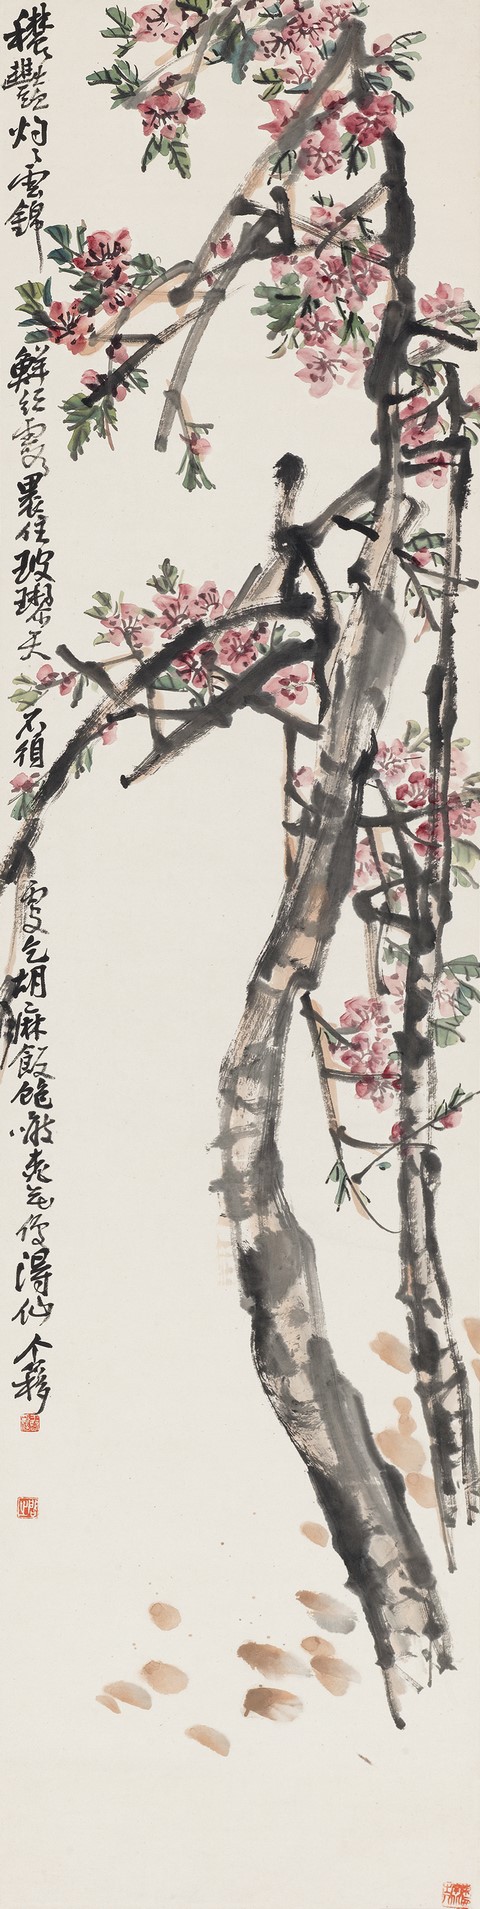 穠豔灼灼雲錦鮮紅霞裹住玻璃天不須更乞胡麻飯飽噉桃花便得仙个簃